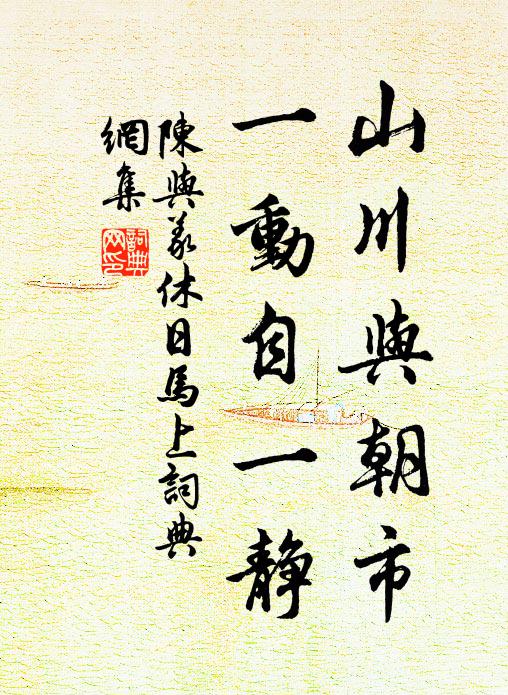 山川與朝市
一動自一靜
陳與義休日馬上詞典
網集
詞典
网印